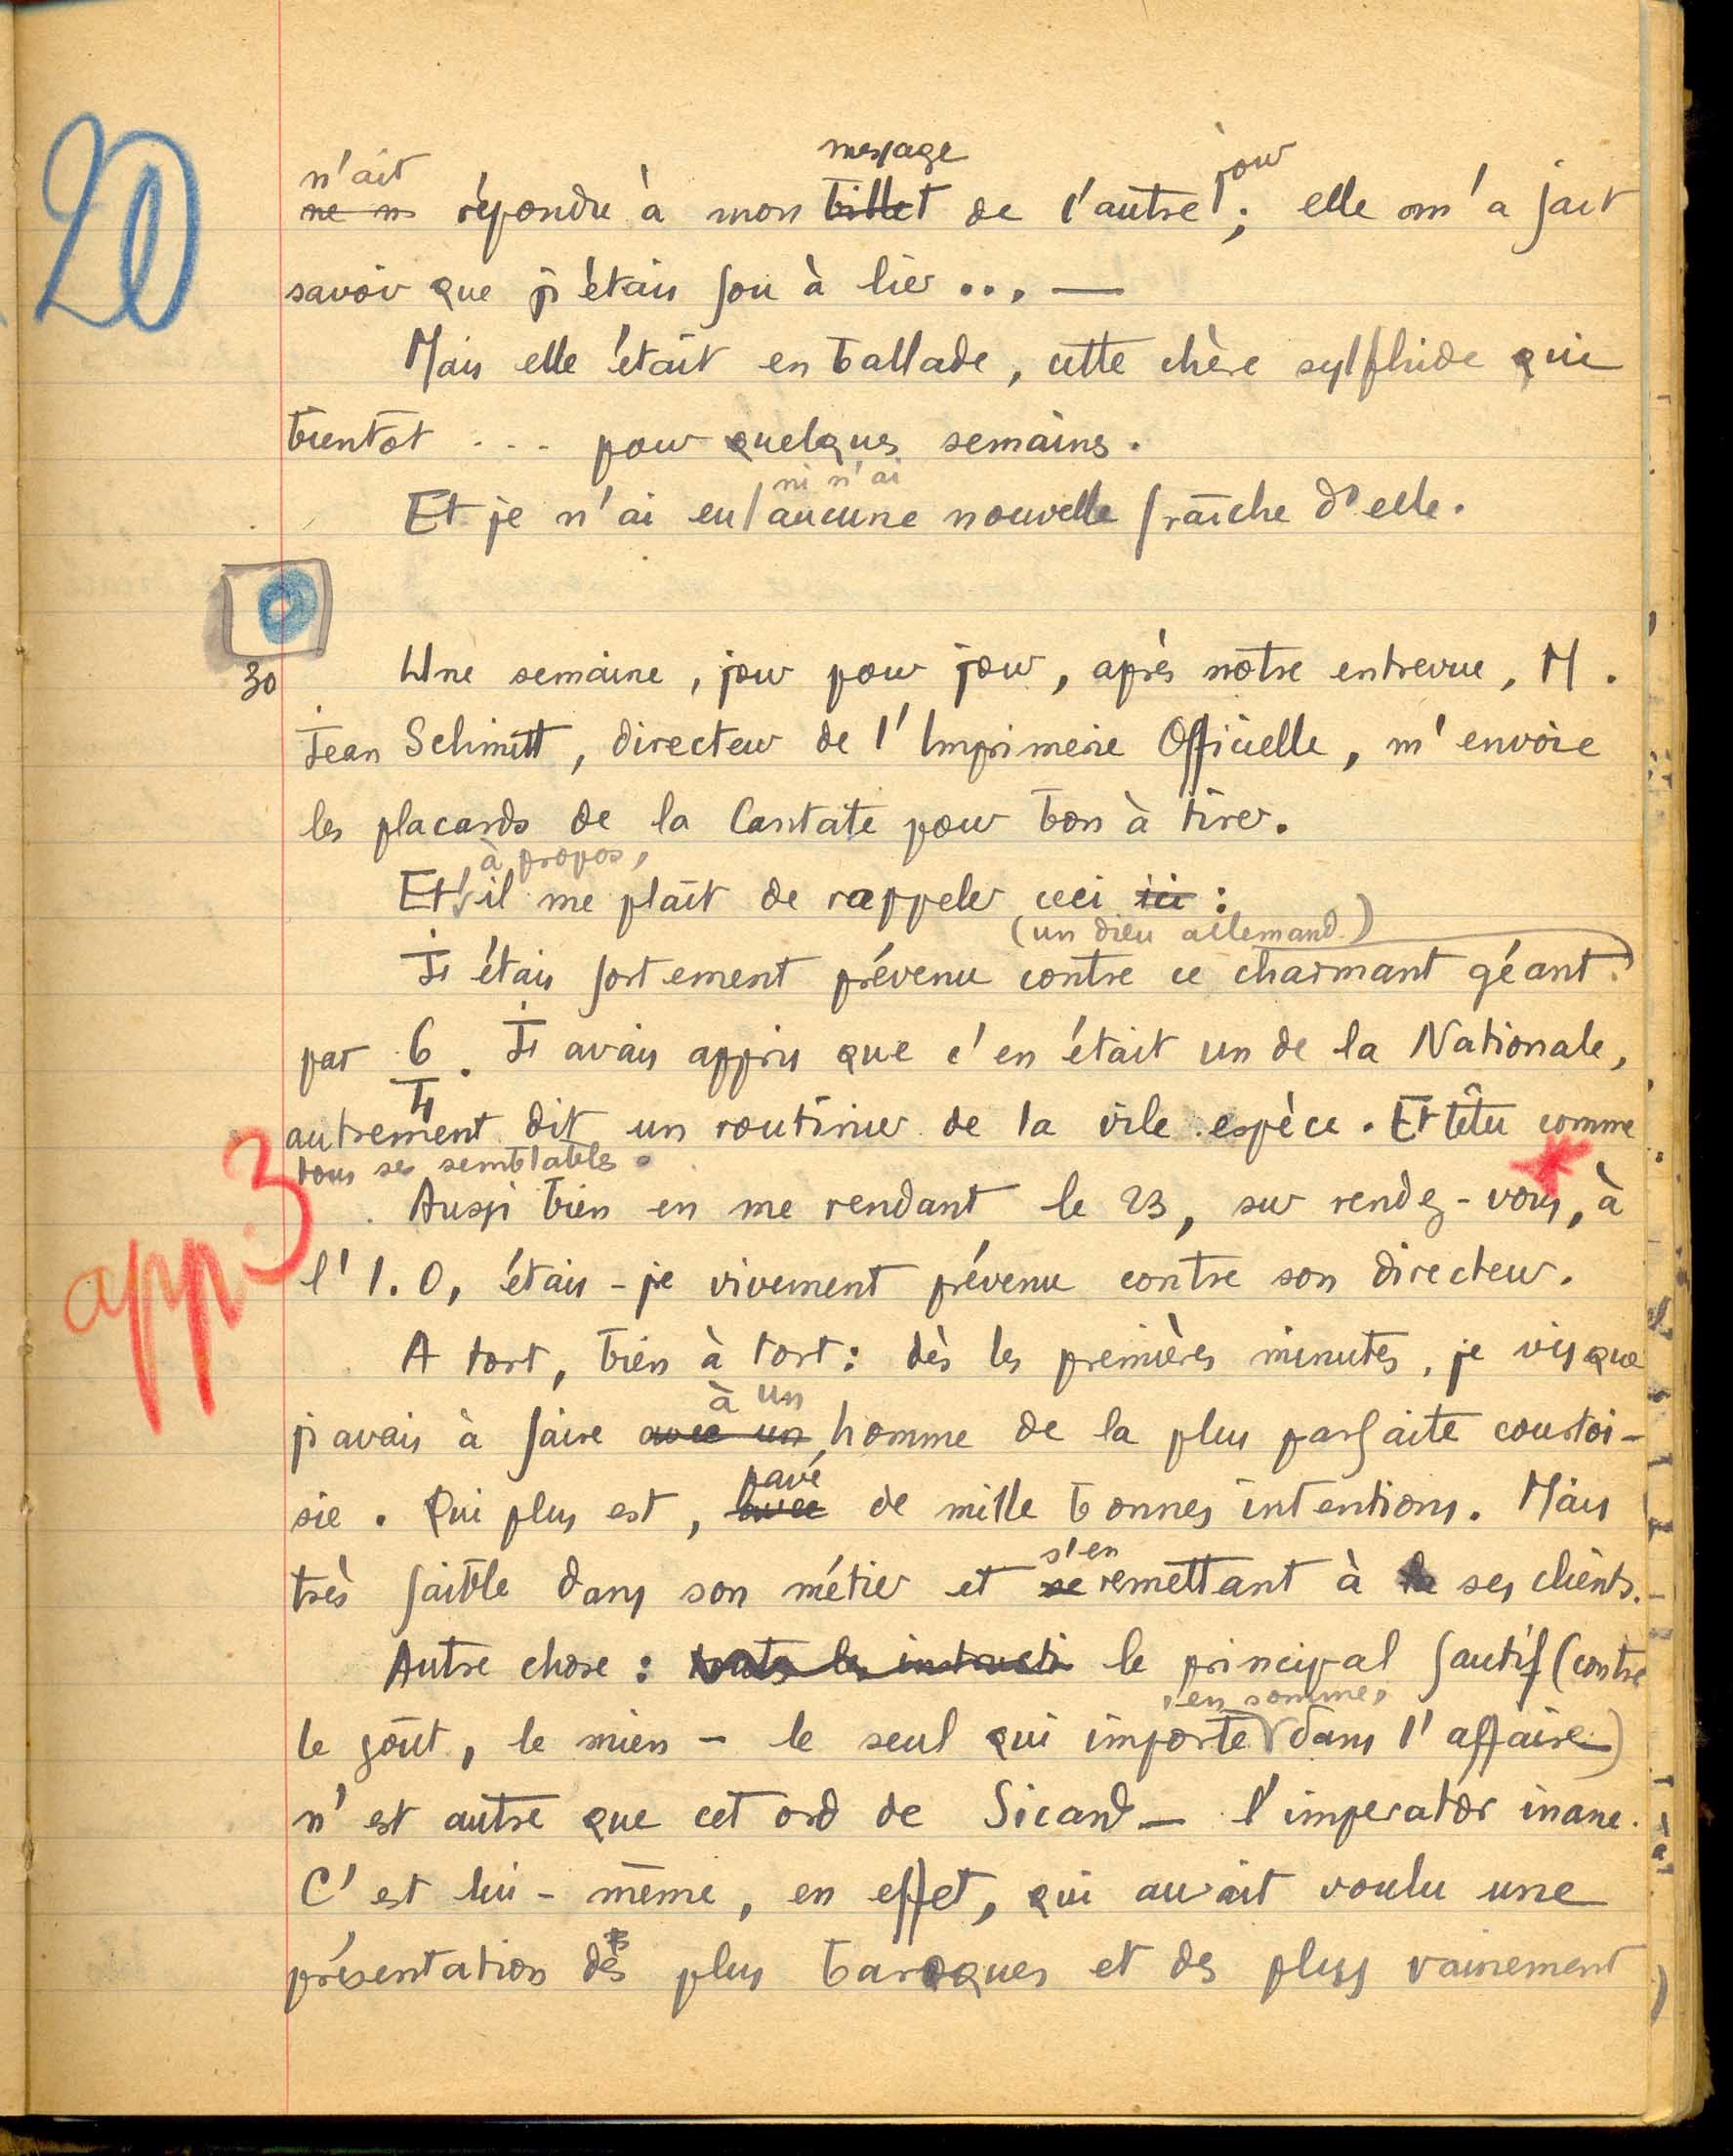 20
message
n'ait jour
ne n répondre à mon billet de l'autre ; elle m'a fait
savoir que j'étais fou à lier ... —
Mais elle était en ballade, cette chère sylphide qui
bientôt ... pour quelques semaines.
ni n'ai
Et je n'ai eu aucune nouvelle fraîche d'elle.
30
Une semaine, jour pour jour, après notre entrevue, M.
Jean Schmitt, directeur de l'Imprimerie Officielle, m'envoie
les placards de la Cantate pour bon à tirer.
à propos,
Et il me plaît de rappeler ceci ici :
(un dieu allemand)
J'étais fortement prévenu contre ce charmant géant.
par 6. J'avais appris que c'en était un de la Nationale,
autrement dit un routinier de la vile espèce. Et têtu comme
tous ses semblables.
app. 3
Aussi bien en me rendant le 23, sur rendez-vous, à
l'I.O, étais-je vivement prévenu contre son directeur.
A tort, bien à tort : dès les premières minutes, je vis que
à un
j'avais à faire avec un homme de la plus parfaite courtoi-
pavé
sie. Qui plus est, de mille bonnes intentions. Mais
s'en
très faible dans son métier et se remettant à ses clients.
Autre chose : toutes les instructi le principal fautif (contre
, en somme,
le goût, le mien - le seul qui importe dans l'affaire)
n'est autre que cet ord de Sicard — l'imperator inane.
C'est lui-même, en effet, qui aurait voulu une
présentation des plus baroques et des plus vainement